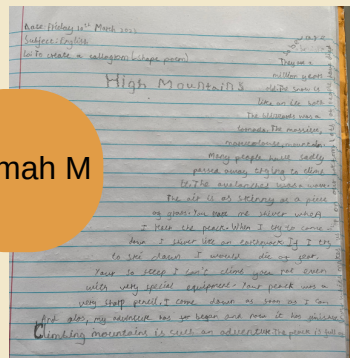 Date: Friday 10th March 2023
Subject: English
LO: To create a calligram (shape poem)
High Mountains
mah M
You are
They are a
million years
old. The snow is
like an ice bath
The blizzards was a
tornado. The massive,
mountain.
Many people have sadly
passed away trying to climb
it. The avalanches was a
The air is as skinny as a piece
of grass. You make me shiver when
I hear the peack. When I try to come
down I shiver like an earthquack. If I try
to ski down I would die of fear.
Your so steep I can't climb you not even
with very special equipment. Your peack was a
very sharp pencil, I come down as soon as I can
And alas, my adventure has so began and now it has finished
Climbing mountains is such an adventure. The peack is full of